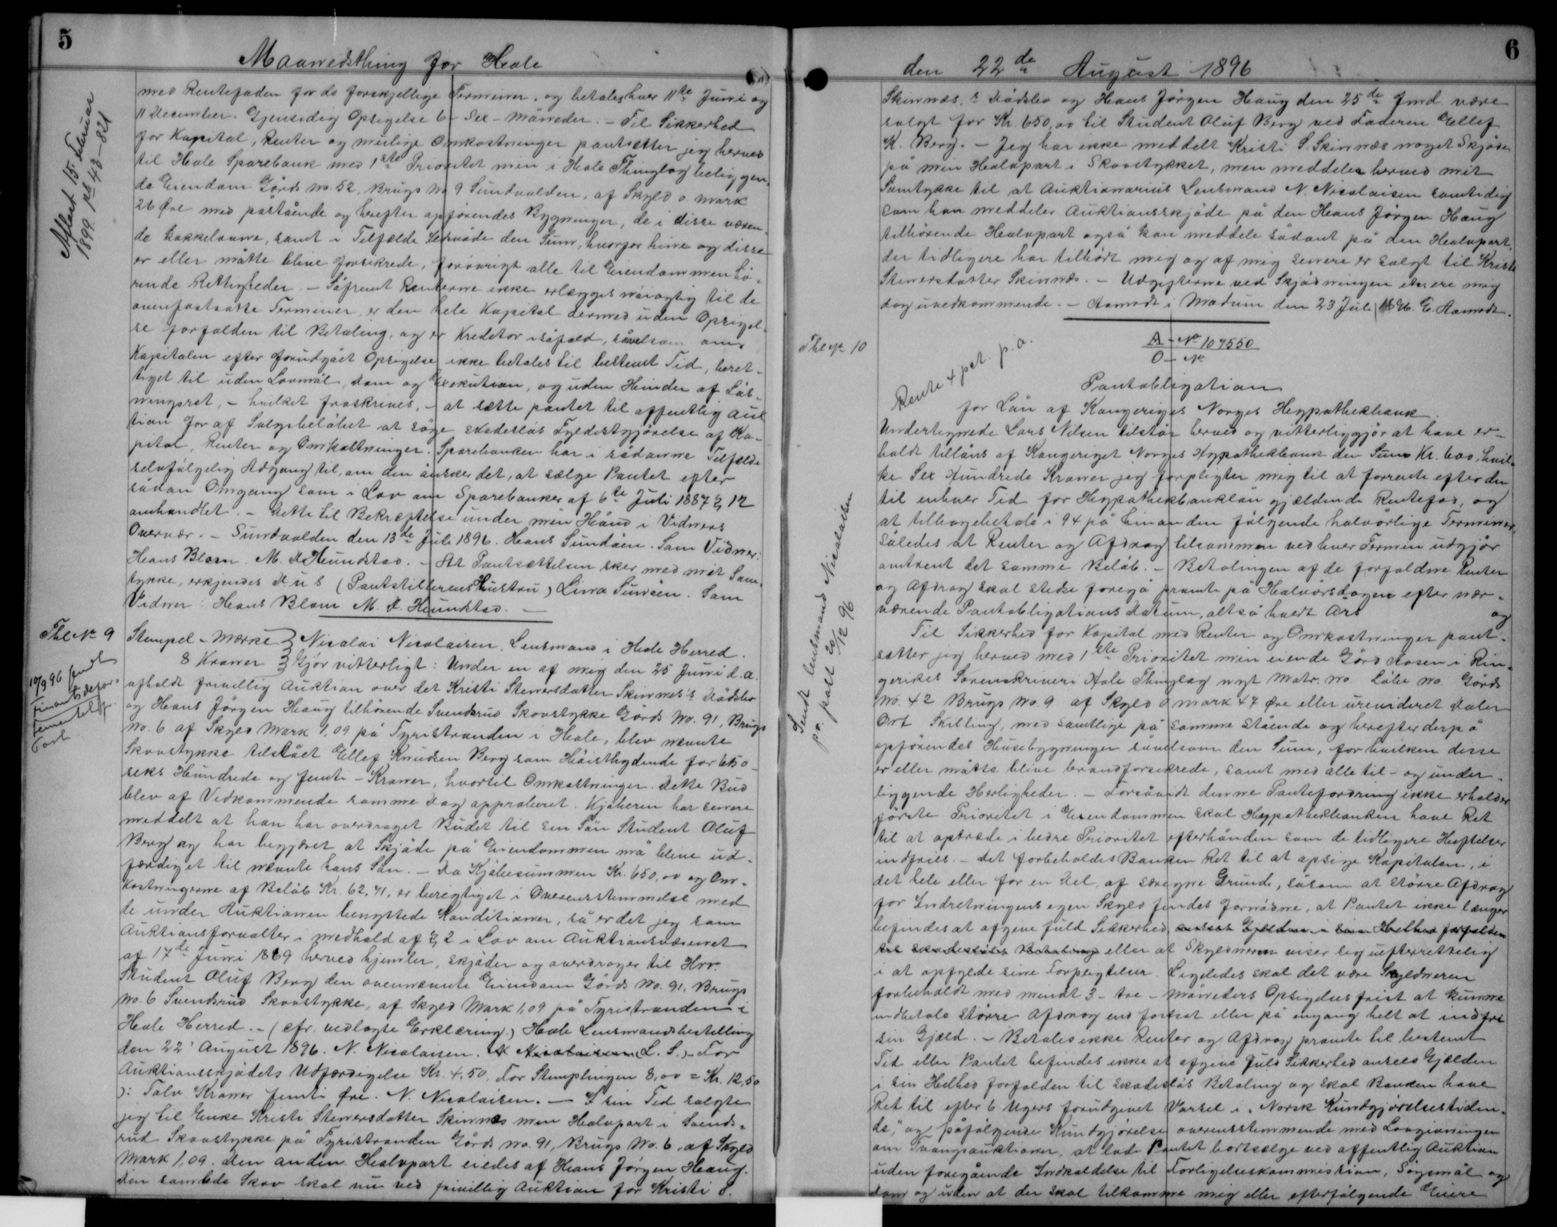 5
Maanedsthing for Hole
Aflæst 15. Februar
1899 Pd 43-821
med Rentefoden for de forskjellige Terminer, og betales hver 11te Juni og
11 December. Gjensidig Opsigelse 6 - Sex - Måneder. - Til Sikkerhed
for Kapital, Renter og mulige Omkostninger pantsætter jeg herved
til Hole Sparebank med 1ste Prioritet min i Hole Thinglag beliggen-
de Eiendom Gårds No. 52, Brugs No 9 Sundvolden, af Skyld o. mark
26 Øre med påstående og herefter opførendes Bygninger, de i disse væren-
de Kakkelovne, samt i Tilfælde Ildsvåde den Sum, hvorfor hine og disse
er eller måtte blive forsikrede, forøvrigt alle til Eiendommen hø-
rende Rettigheder. - Såfremt Renterne ikke erlægges nøiagtig til de
ovenfastsatte Terminer, er den hele Kapital dermed uden Opsigel-
se forfalden til Betaling, og er Kreditor isåfald, såvelsom om
Kapitalen efter forudgået Opsigelse ikke betales til bestemt Tid, beret-
tiget til uden Lovmål, Dom og Exekution, og uden Hinder af Løs-
ningsret, - hvilket fraskrives, - at sætte pantet til offentlig Auk
tion for af Salgsbeløbet at søge skadesløs Fyldestgjørelse af Ka-
pital, Renter og Omkostninger. Sparebanken har i sådanne Tilfælde
selvfølgelig Adgang til, om den ønsker det, at sælge Pantet efter
sådan Omgang som i Lov om Sparebanker af 6te Juli 1887 § 12
omhandlet. - Dette til Bekræftelse under min Hånd i Vidners
Overvær. - Sundvolden den 13de Juli 1896. Hans Sundøen. Som Vidner:
Hans Blom. M. A. Hundstad. - At Pantsættelsen sker med mit Sam-
tykke, erkjendes D u S (Pantstillerens Hustru) Lina Sundøen. Som
Vidner: Hans Blom M. A. Hundstad. -
Thl No 9
Stempel-Mærke
8 Kroner
Nicolai Nicolaisen, Lensmand i Hole Herred.
Gjør vitterligt: Under en af mig den 25 Juni d. a.
afholdt frivillig Auktion over det Kristi Steversdatter Skinnæs's Dødsbo
og Hans Jørgen Haug tilhørende Svendsrud Skovstykke Gårds No. 91, Brugs
No. 6 af Skyld Mark 1,09 på Tyristranden i Hole, blev nævnte
Skovstykke tilslået Ellef Knudsen Berg som Høistbydende for 650 -
seks Hundrede og femti - Kroner, hvortil Omkostninger. Dette Bud
blev af Vedkommende samme Dag approberet. Kjøberen har senere
meddelt at han har overdraget Budet til sin Søn Student Oluf
Berg og har begjæret at Skjøde på Eiendommen må blive ud-
færdiget til nævnte hans Søn. - Da Kjøbesummen Kr. 650,00 og Om-
kostningerne af Beløb Kr. 62,41, er berigtiget i Overensstemmelse med
de under Auktionen benyttede Konditioner, så er det jeg som
Auktionsforvalter i medhold af § 2 i Lov om Auktionsvæsenet
af 17de Juni 1869 herved hjemler, skjøder og overdrager til Hrr.
Student Oluf Berg den ovennævnte Eiendom Gårds No. 91, Brugs
No. 6 Svendsrud Skovstykke, af Skyld Mark 1,09 på Tyristranden i
Hole Herred. - (cfr. vedlagte Erklæring.) Hole Lensmandsbestilling
den 22' August 1896. N. Nicolaisen. N. Nicolaisen (L. S.) - For
Auktionsskjødets Udfærdigelse Kr. 4,50. For Stemplingen 8,00 = Kr. 12,50
): Tolv Kroner femti Øre. N. Nicolaisen. - I sin Tid solgte
jeg til Enke Kristi Steversdatter Skinnæs min Halvpart i Svends-
rud Skovstykke på Tyristranden Gårds No. 91, Brugs No. 6, af Skyld
Mark 1,09. Den anden Halvpart eiedes af Hans Jørgen Haug.
Den samlede Skov skal nu ved frivillig Auktion for Kristi S.
6
den 22de August 1896
Skinnæs.s Dødsbo og Hans Jørgen Haug den 25de Jmd. være
solgt for Kr. 650,00 til Student Oluf Berg ved Faderen Ellef
K. Berg. - Jeg har ikke meddelt Kristi S. Skinnæs noget Skjøde
på min Halvpart i Skovstykket, men meddeler herved mit
Samtykke til at Auktionarius Lensmand N. Nicolaisen samtidig
som han meddeler Auktionsskjøde på den Hans Jørgen Haug
tilhørende Halvpart også kan meddele sådant på den Halvpart,
der tidligere har tilhørt mig og af mig senere er solgt til Kristi
Steversdatter Skinnæs. - Udgifterne ved Skjødningen ere mig
dog uvedkommende. - Aamodt i Modum den 23 Juli 1896. E. Aamodt.
Thl No 10
Rente 4 pct. p. a.
A - No 107550
O - No
Pantobligation
for Lån af Kongeriget Norges Hypothekbank.
Undertegnede Lars Nilsen tilstår herved og vitterliggjør at have er-
holdt tillåns af Kongeriget Norges Hypothekbank den Sum Kr. 600, hvil-
ke Sex Hundrede Kroner jeg forpligter mig til at forrente efter den
til enhver Tid for Hypothekbanklån gjældende Rentefod, og
at tilbagebetale i 94 på hinanden følgende halvårlige Terminer,
således at Renter og Afdrag tilsammen ved hver Termin udgjør
omtrent det samme Beløb. - Betalingen af de forfaldne Renter
og Afdrag skal stedse foregå promte på Halvårsdagen efter nær-
værende Pantobligations Datum, altså hvert Års og
Til Sikkerhed for Kapital med Renter og Omkostninger pant-
sætter jeg herved med 1ste Prioritet min eiende Gård Åsen i Rin-
gerikes Sorenskriveri Hole Thinglag nyt Matr. No. Løbe No. Gårds
No. 42 Brugs No. 9 af Skyld 0 mark 47 Øre eller urevideret Daler
Ort Skilling, med samtlige på samme stående og herefter derpå
opførendes Husebygninger såvelsom den Sum, for hvilken disse
er eller måtte blive brandforsikrede, samt med alle til- og under-
liggende Herligheder. - Forsåvidt denne Pantefordring ikke erholder
første Prioritet i Eiendommen skal Hypothekbanken have Ret
til at optræde i bedre Prioritet efterhånden som de tidligere Heftelser
indfries. - Det forbeholdes Banken Ret til at opsige Kapitalen, i
det hele eller for en Del, af særegne Grunde, såsom at større Afdrag
for Indretningens egen Skyld findes fornødne, at Pantet ikke længer
befindes at afgive fuld Sikkerhed, ansees Gjælden i sin Helhed forfalden
til skadesløs Betaling eller at Skyldneren viser sig uefterrettelig
i at opfylde sine Forpligtelser. Ligeledes skal det være Skyldneren
forbeholdt med mindst 3 - tre - måneders Opsigelses frist at kunne
indbetale større Afdrag end fastsat eller på engang helt at indfri
sin Gjæld. - Betales ikke Renter og Afdrag promte til bestemt
Tid eller Pantet befindes ikke at afgive fuld Sikkerhed ansees Gjælden
i sin Helhed forfalden til skadesløs Betaling og skal Banken have
Ret til efter 6 Ugers forudgivet Varsel i "Norsk Kundgjørelsestiden-
de," og påfølgende Kundgjørelse overensstemmende med Lovgivningen
om Tvangsauktioner, at lade Pantet bortsælge ved offentlig Auktion
uden foregående Indkaldelse til Forligelseskommission, Søgsmål og
Dom og uden at der skal tilkomme mig eller efterfølgende Eiere